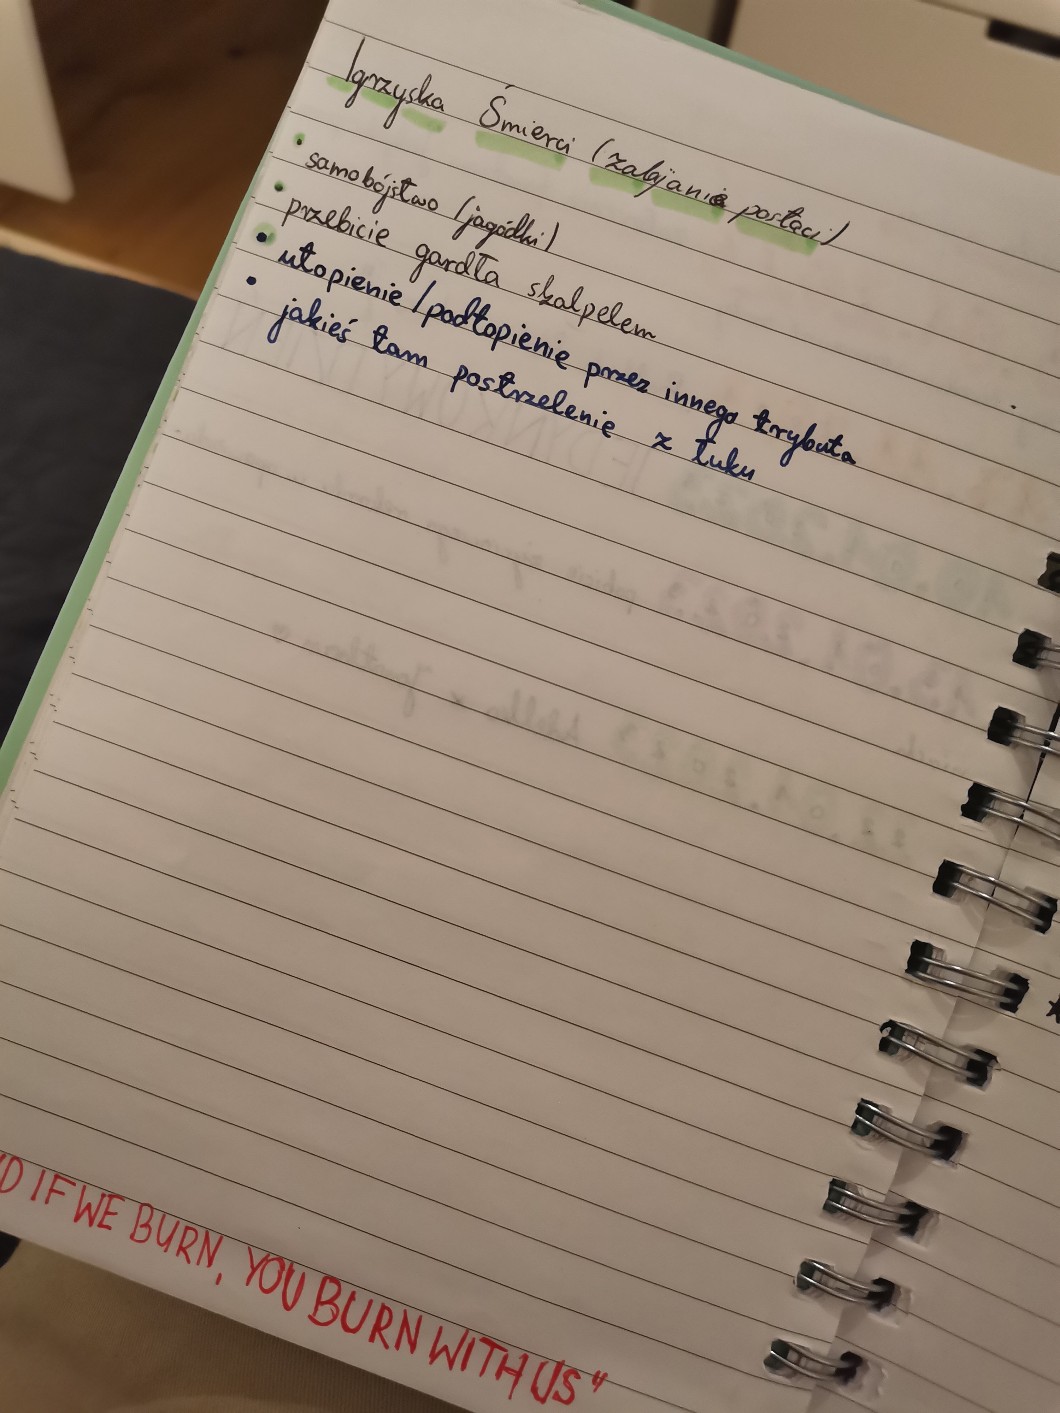 Igrzyska Śmierci (zabijanie postaci)
• samobójstwo (jagódki)
• przebicie gardła skalpelem
• utopienie/podtopienie przez innego trybuta
• jakieś tam postrzelenie z łuku
IF WE BURN, YOU BURN WITH US"